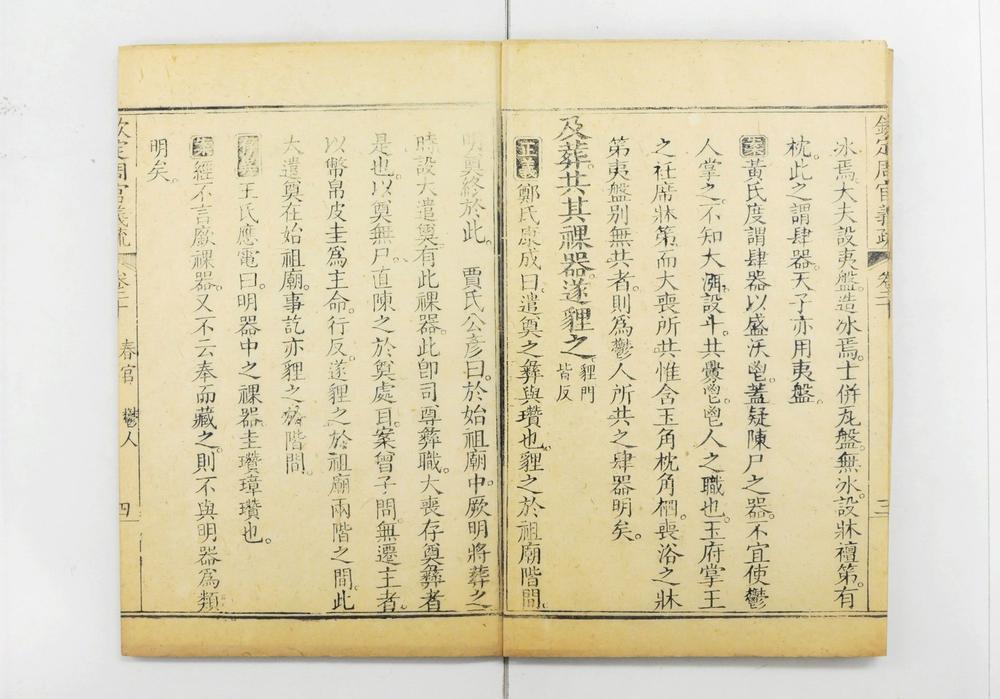 欽定周官義疏 卷二十 三
冰焉大夫設夷盤造冰焉士併瓦盤無冰設牀襢第有
枕此之謂肆器天子亦用夷盤
案黃氏度謂肆器以盛沃鬯蓋疑陳尸之器不宜使鬱
人掌之不知大渳設斗共釁鬯鬯人之職也玉府掌王
之衽席牀第而大喪所共惟含玉角枕角柶喪浴之牀
第夷盤別無共者則爲鬱人所共之肆器明矣
及葬共其祼器遂貍之 貍門皆反
正義鄭氏康成曰遣奠之彝與瓚也貍之於祖廟階間
明奠終於此 賈氏公彥曰於始祖廟中厥明將葬之
時設大遣奠有此祼器此卽司尊彝職大喪存奠彝者
是也以奠無尸直陳之於奠處耳案曾子問無遷主者
以幣帛皮圭爲主命行反遂貍之於祖廟兩階之間此
大遣奠在始祖廟事訖亦貍之於階間
王氏應電曰明器中之祼器圭瓚璋瓚也
案經不言廞祼器又不云奉而藏之則不與明器爲類
明矣
欽定周官義疏 卷二十 春官 鬱人 四